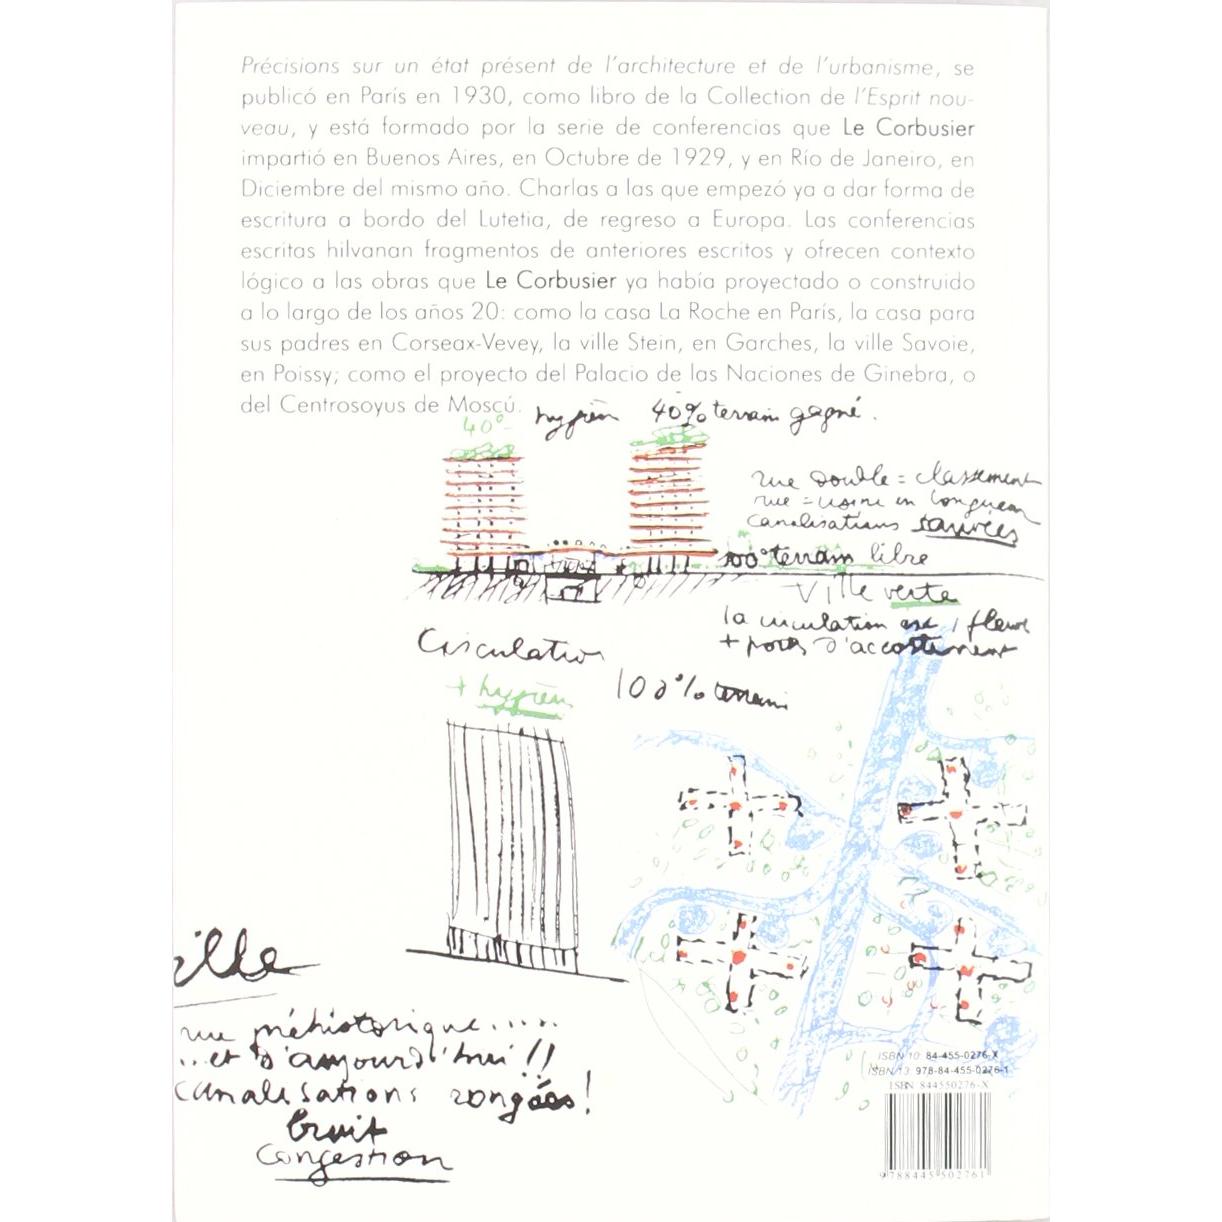 Précisions sur un état présent de l'architecture et de l'urbanisme, se
publicó en París en 1930, como libro de la Collection de l'Esprit nou-
veau, y está formado por la serie de conferencias que Le Corbusier
impartió en Buenos Aires, en Octubre de 1929, y en Río de Janeiro, en
Diciembre del mismo año. Charlas a las que empezó ya a dar forma de
escritura a bordo del Lutetia, de regreso a Europa. Las conferencias
escritas hilvanan fragmentos de anteriores escritos y ofrecen contexto
lógico a las obras que Le Corbusier ya había proyectado o construido
a lo largo de los años 20: como la casa La Roche en París, la casa para
sus padres en Corseax-Vevey, la ville Stein, en Garches, la ville Savoie,
en Poissy; como el proyecto del Palacio de las Naciones de Ginebra, o
del Centrosoyus de Moscú.
40%
hygièn 40% terrain gagné.
rue double = classement
rue = usine en longueur
canalisations sauvées
100% terrain libre
Ville verte
la circulation est 1 fleuve
+ ports d'accostement
Circulation
+ hygièn
100% terrain
ville
rue préhistorique.....
...et d'aujourd'hui !!
canalisations rongées!
bruit
congestion
ISBN 10: 84-455-0276-X
ISBN 13: 978-84-455-0276-1
ISBN 844550276-X
9 788445 502761